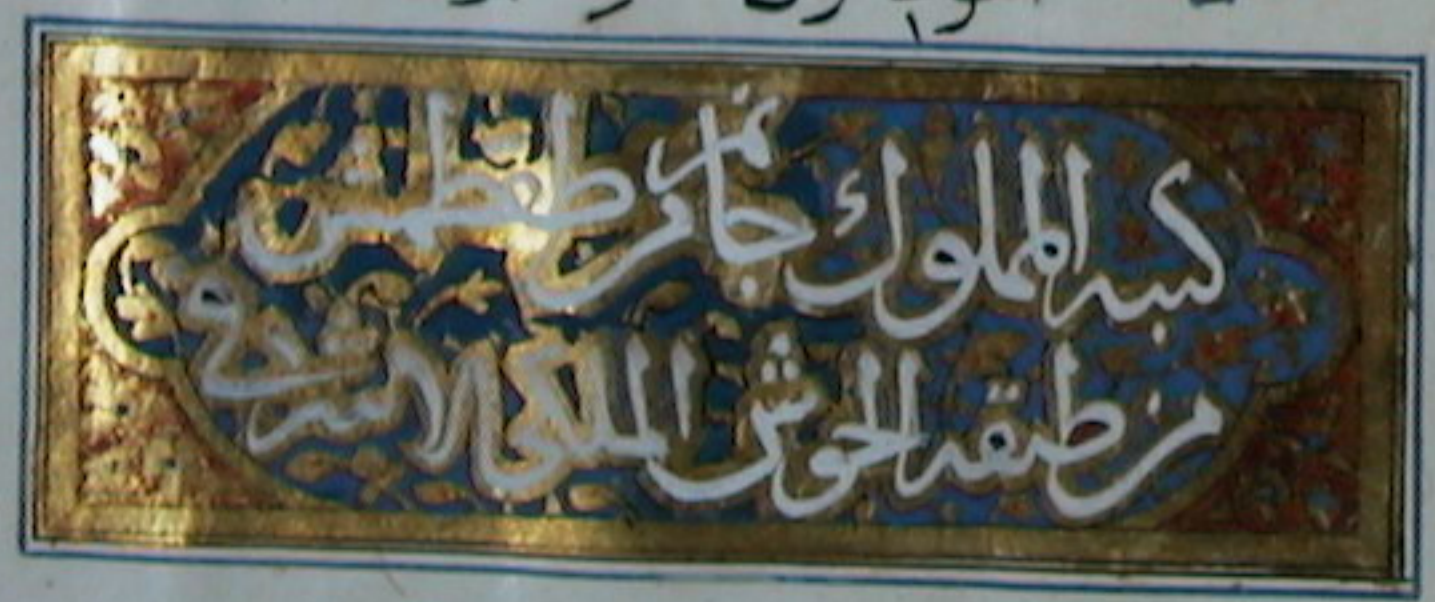 كتبه المملوك جانم من ططمش
من طبقه الحوش الملكي الاشرفي